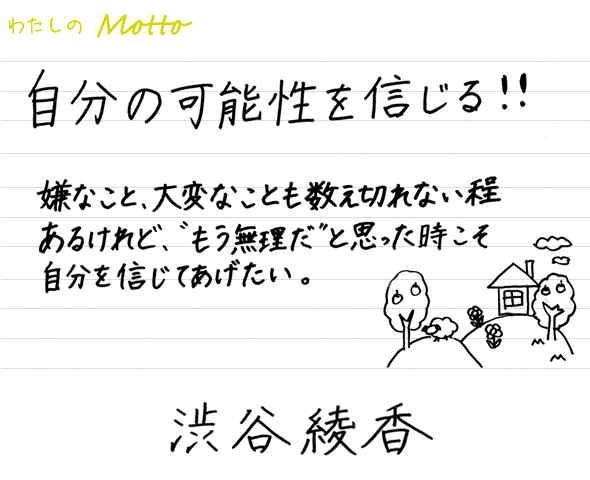 わたしの Motto
自分の可能性を信じる!!
嫌なこと、大変なことも数え切れない程
あるけれど、〝もう無理だ〞と思った時こそ
自分を信じてあげたい。
渋谷綾香